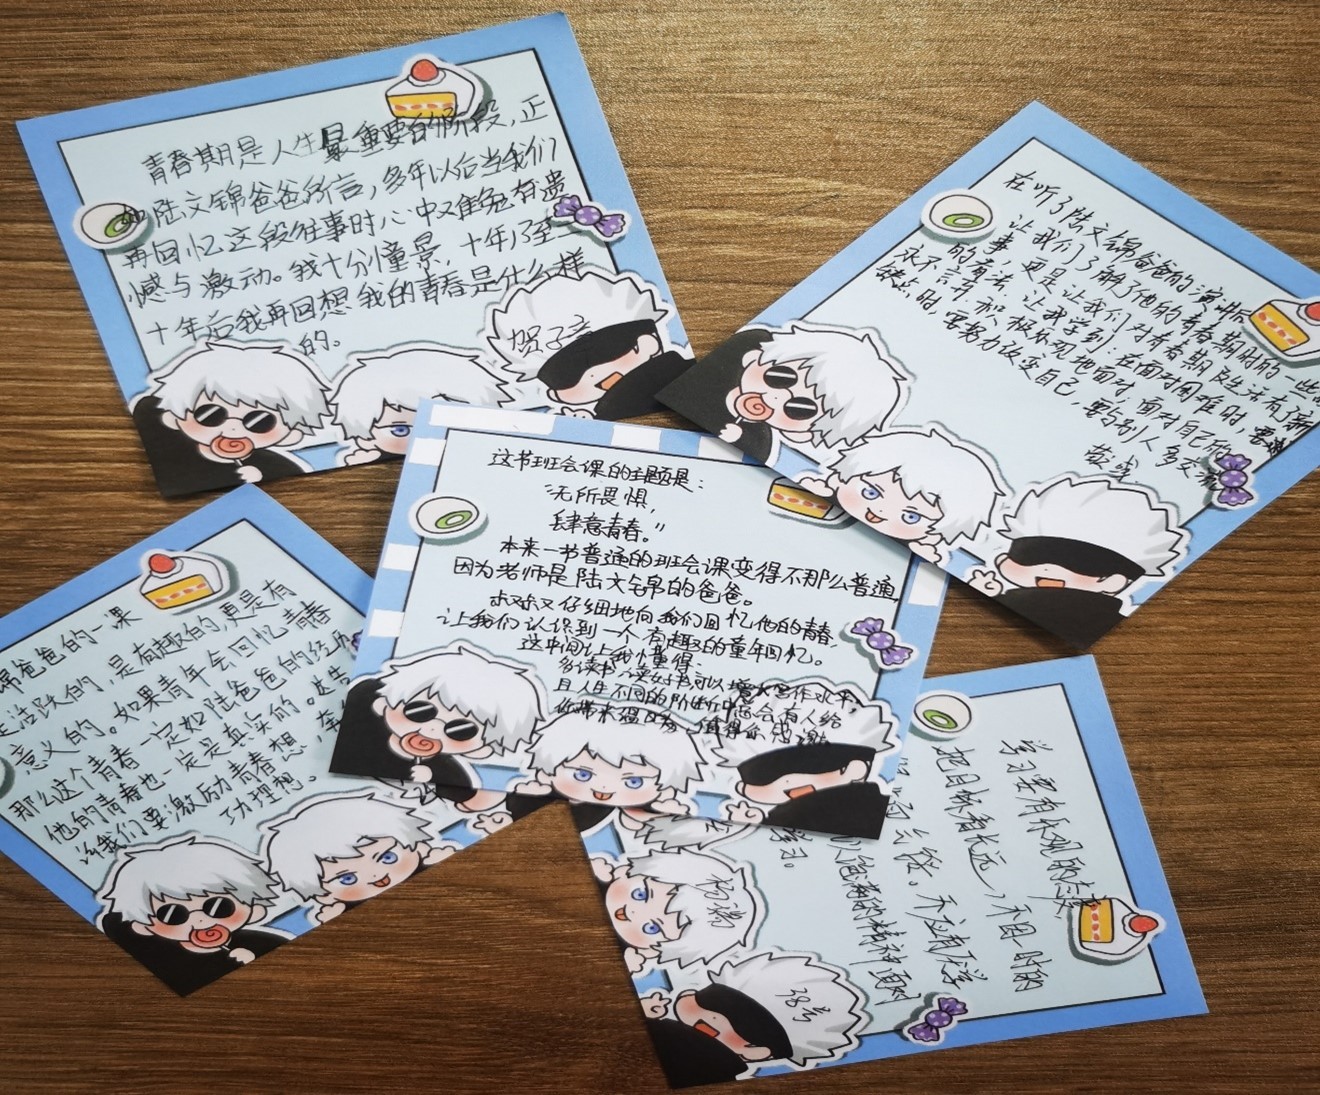 青春期是人生最重要的阶段,正
如陆文锦爸爸所言,多年以后当我们
再回忆这段往事时心中难免有遗
憾与激动。我十分憧景,十年乃至二
十年后我再回想我的青春是什么样
的。
贺子
在听了陆文锦爸爸的演讲
让我们了解了他的青春期时的一些
事,更是让我们对青春期及生活有
的看法,让我学到:在面对困难时,要
永不言弃,积极乐观地面对,面对自己的
缺点时,要努力改变自己,要与别人多交
这节班会课的主题是:
“无所畏惧,
肆意青春。”
本来一节普通的班会课变得不那么普通,
因为老师是陆文锦的爸爸。
叔叔仔细地向我们回忆他的青春,
让我们认识到一个有趣的童年回忆。
这中间让我懂得:
多读书,读好书可以增大写作水平,
且人生不同的阶段中总会有人给
你带来温暖,值得你感激。
爸爸的一课
活跃的,是有趣的,更是有
意义的。如果青年会回忆青春
那么这个青春一定如陆爸爸的经历
他的青春也一定是真实的。
许我们要激励青春想,
力理想。
学习要有乐观的态度
把目标看长远,不因一时的
而气馁。不应有厌学
以饱满的精神面对
学习。
38号